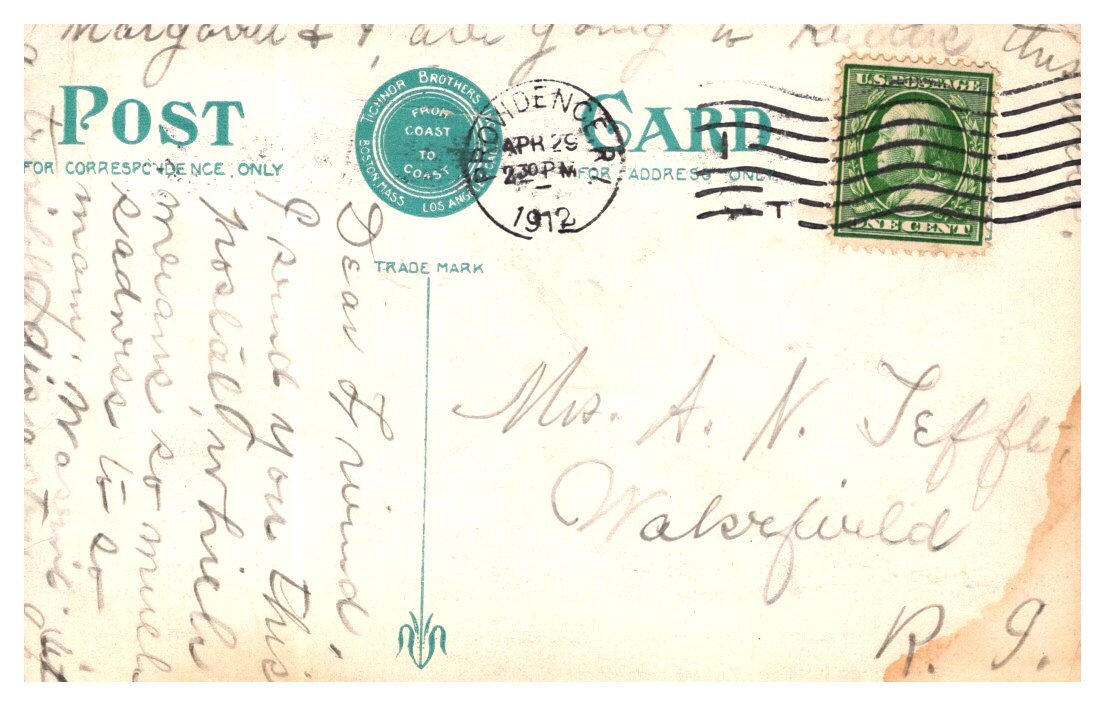 Margaret & I, are going to the this
POST CARD
TICHNOR BROTHERS
BOSTON, MASS. LOS ANGELES
FROM
COAST
TO
COAST
FOR CORRESPONDENCE ONLY
FOR ADDRESS ONLY
TRADE MARK
PROVIDENCE R.I.
APR 29
2 30 PM
1912
U.S. POSTAGE
ONE CENT
Dear Friend,
I send you this
postal, which
means so much
sadness to so
many. Was it
Mrs. A. N. Tefft,
Wakefield
R. I.